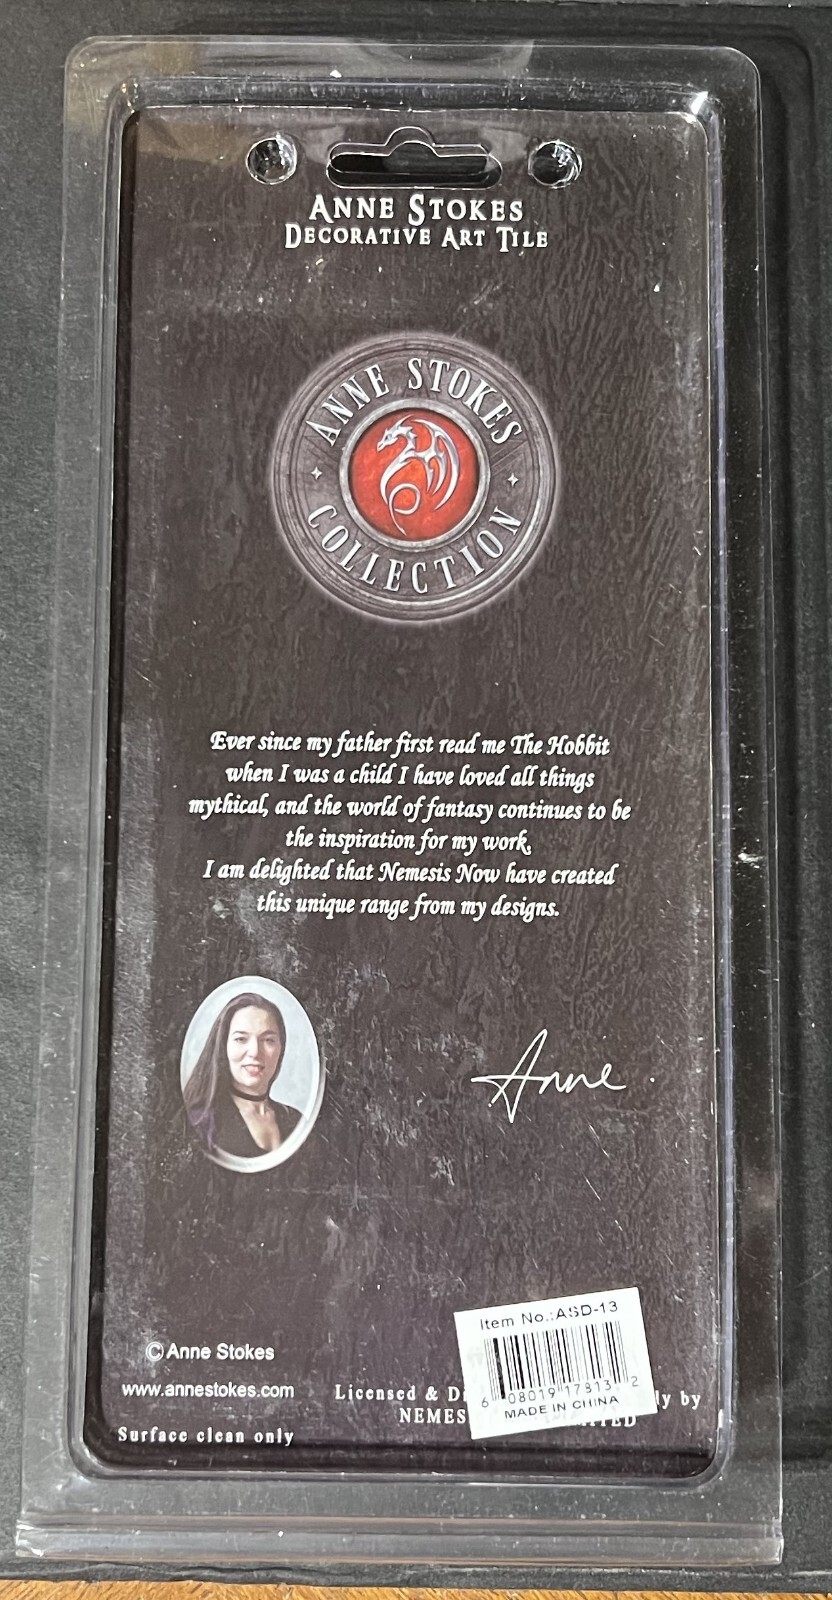 ANNE STOKES
DECORATIVE ART TILE
ANNE STOKES
COLLECTION
Ever since my father first read me The Hobbit
when I was a child I have loved all things
mythical, and the world of fantasy continues to be
the inspiration for my work.
I am delighted that Nemesis Now have created
this unique range from my designs.
Anne
Item No.:ASD-13
6 08019 17813 2
MADE IN CHINA
© Anne Stokes
www.annestokes.com
Licensed & by
Surface clean only